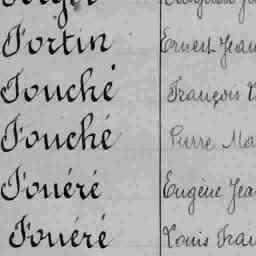 Fortin Ernest Jean
Fouché François
Fouché Pierre Ma
Fouéré Eugène Jea
Fouéré Louis Fran